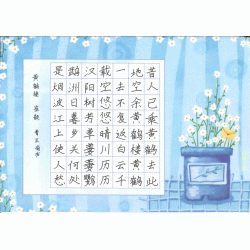 昔人已乘黄鹤去此
地空余黄鹤楼黄鹤
一去不复返白云千
载空悠悠晴川历历
汉阳树芳草萋萋鹦
鹉洲日暮乡关何处
是烟波江上使人愁
黄鹤楼 崔颢